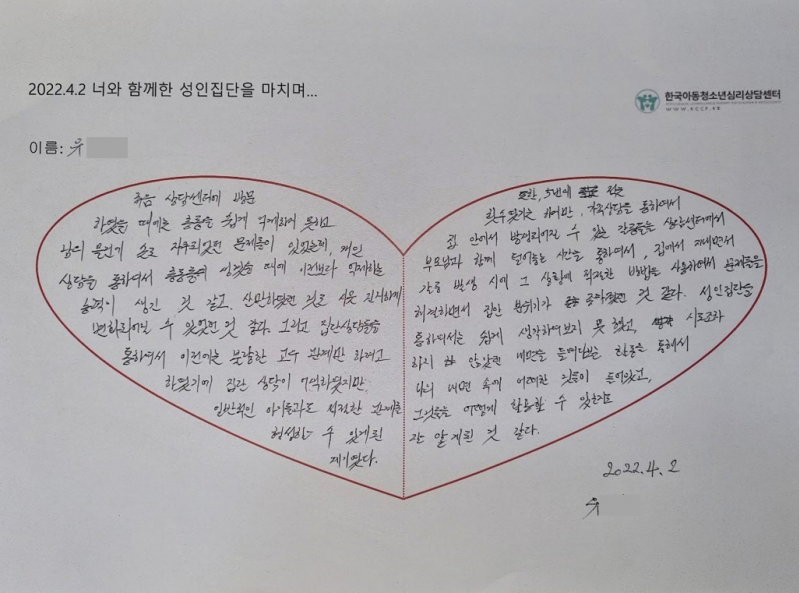 2022.4.2 너와 함께한 성인집단을 마치며...
한국아동청소년심리상담센터
WWW.KCCP.KR
이름: 우
처음 상담센터에 방문
하였을 때에는 충동을 쉽게 억제하지 못하고
남의 물건에 손으로 문제들이 있었는데, 개인
상담을 통하여서 충동들이 생겼을 때에 이전보다 억제하는
능력이 생긴 것 같고, 산만하였던 것도 사뭇 진지하게
변화되어질 수 있었던 것 같다. 그리고 집단상담들을
통하여서 이전에는 불량한 교우 관계만 하려고
하였기에 집단 상담이 어려웠지만,
일반적인 아이들과도 적절한 관계를
형성할 수 있게된
계기였다.
또한, 5번에
횟수였지만, 가족상담을 통하여서
집 안에서 발생되어질 수 있는 갈등들을 상담센터에서
부모님과 함께 털어놓는 시간을 통하여서, 집에서 지내면서
갈등 발생 시에 그 상황에 적절한 방법을 사용하여서 문제들을
해결하면서 집안 분위기가 좋아졌던 것 같다. 성인집단을
통하여서는 쉽게 생각하여보지 못 했고, 시도조차
하지 않았던 내면을 들여다보는 활동을 통해서
나의 내면 속에 어떠한 것들이 들어있고,
그것들을 어떻게 활용할 수 있는지도
잘 알게된 것 같다.
2022.4.2
우